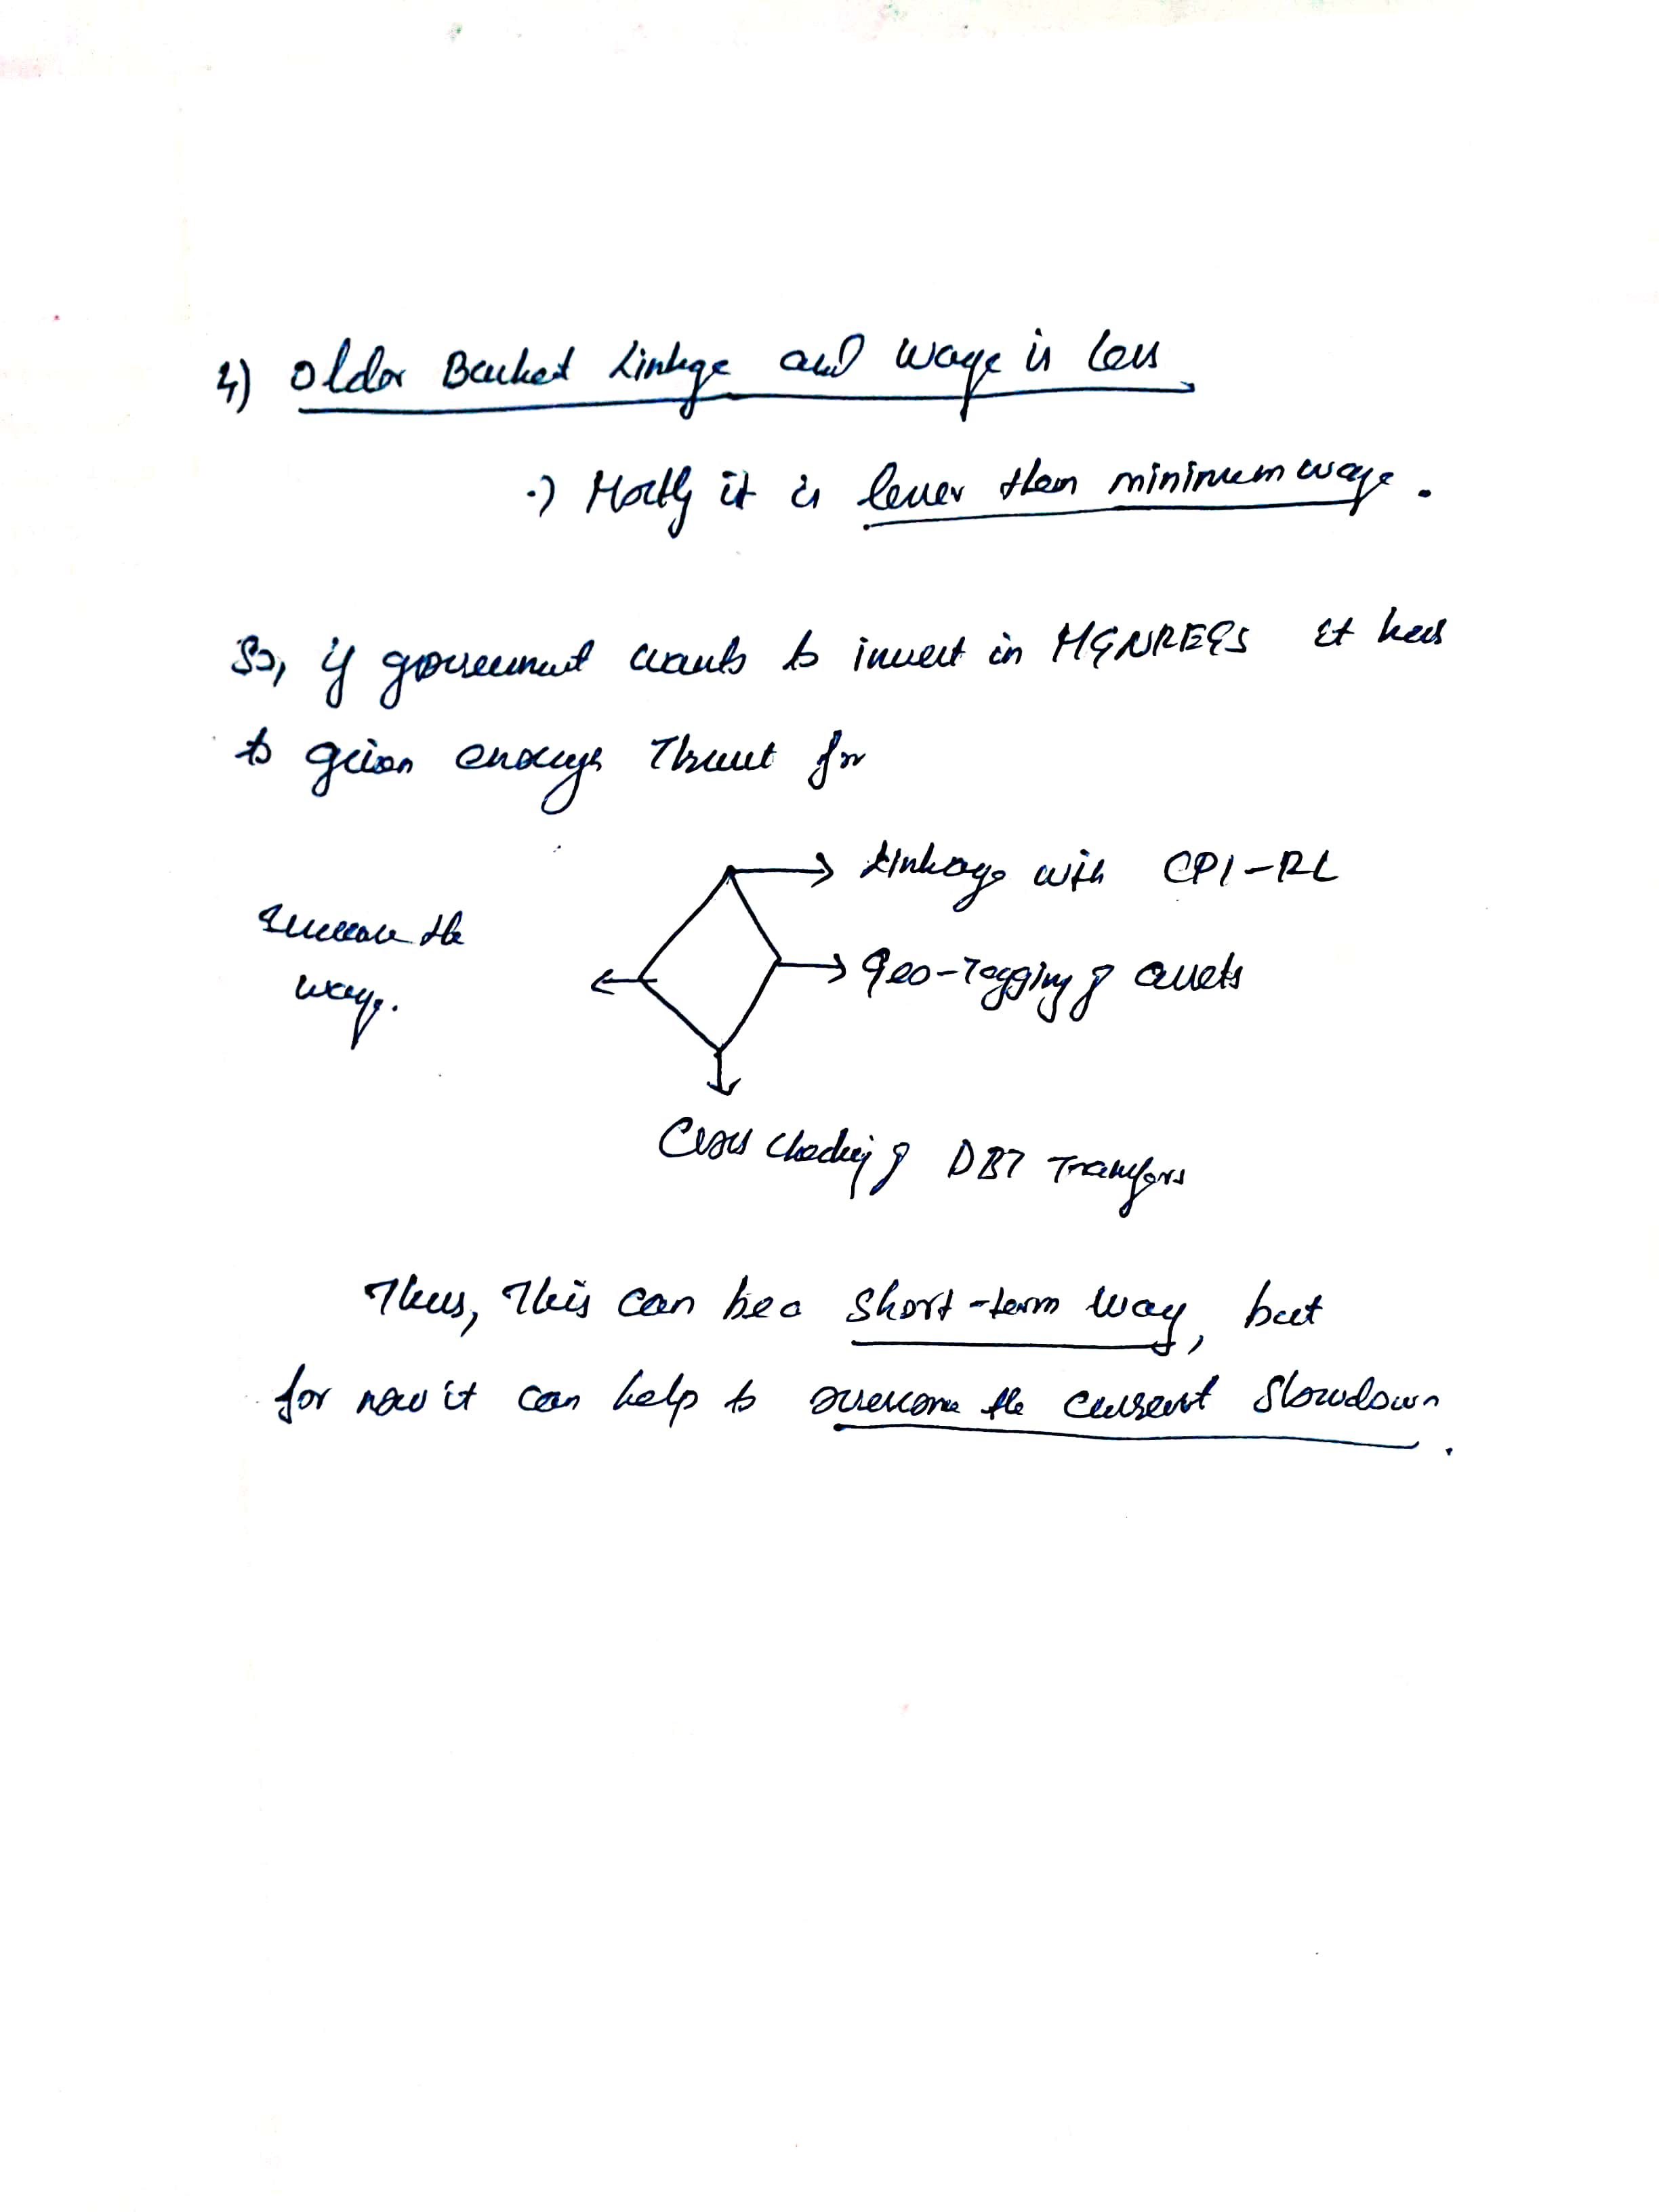 4) Older Basket Linkage and wage is less
·) Mostly it is lesser than minimum wage.
So, if government wants to invest in MGNREGS it has
to given enough Thrust for
Linkage with CPI-RL
Increase the
wage.
Geo-Tagging of assets
Cross checking of DBT Transfers
Thus, This can be a short-term way, but
for now it can help to overcome the current slowdown.